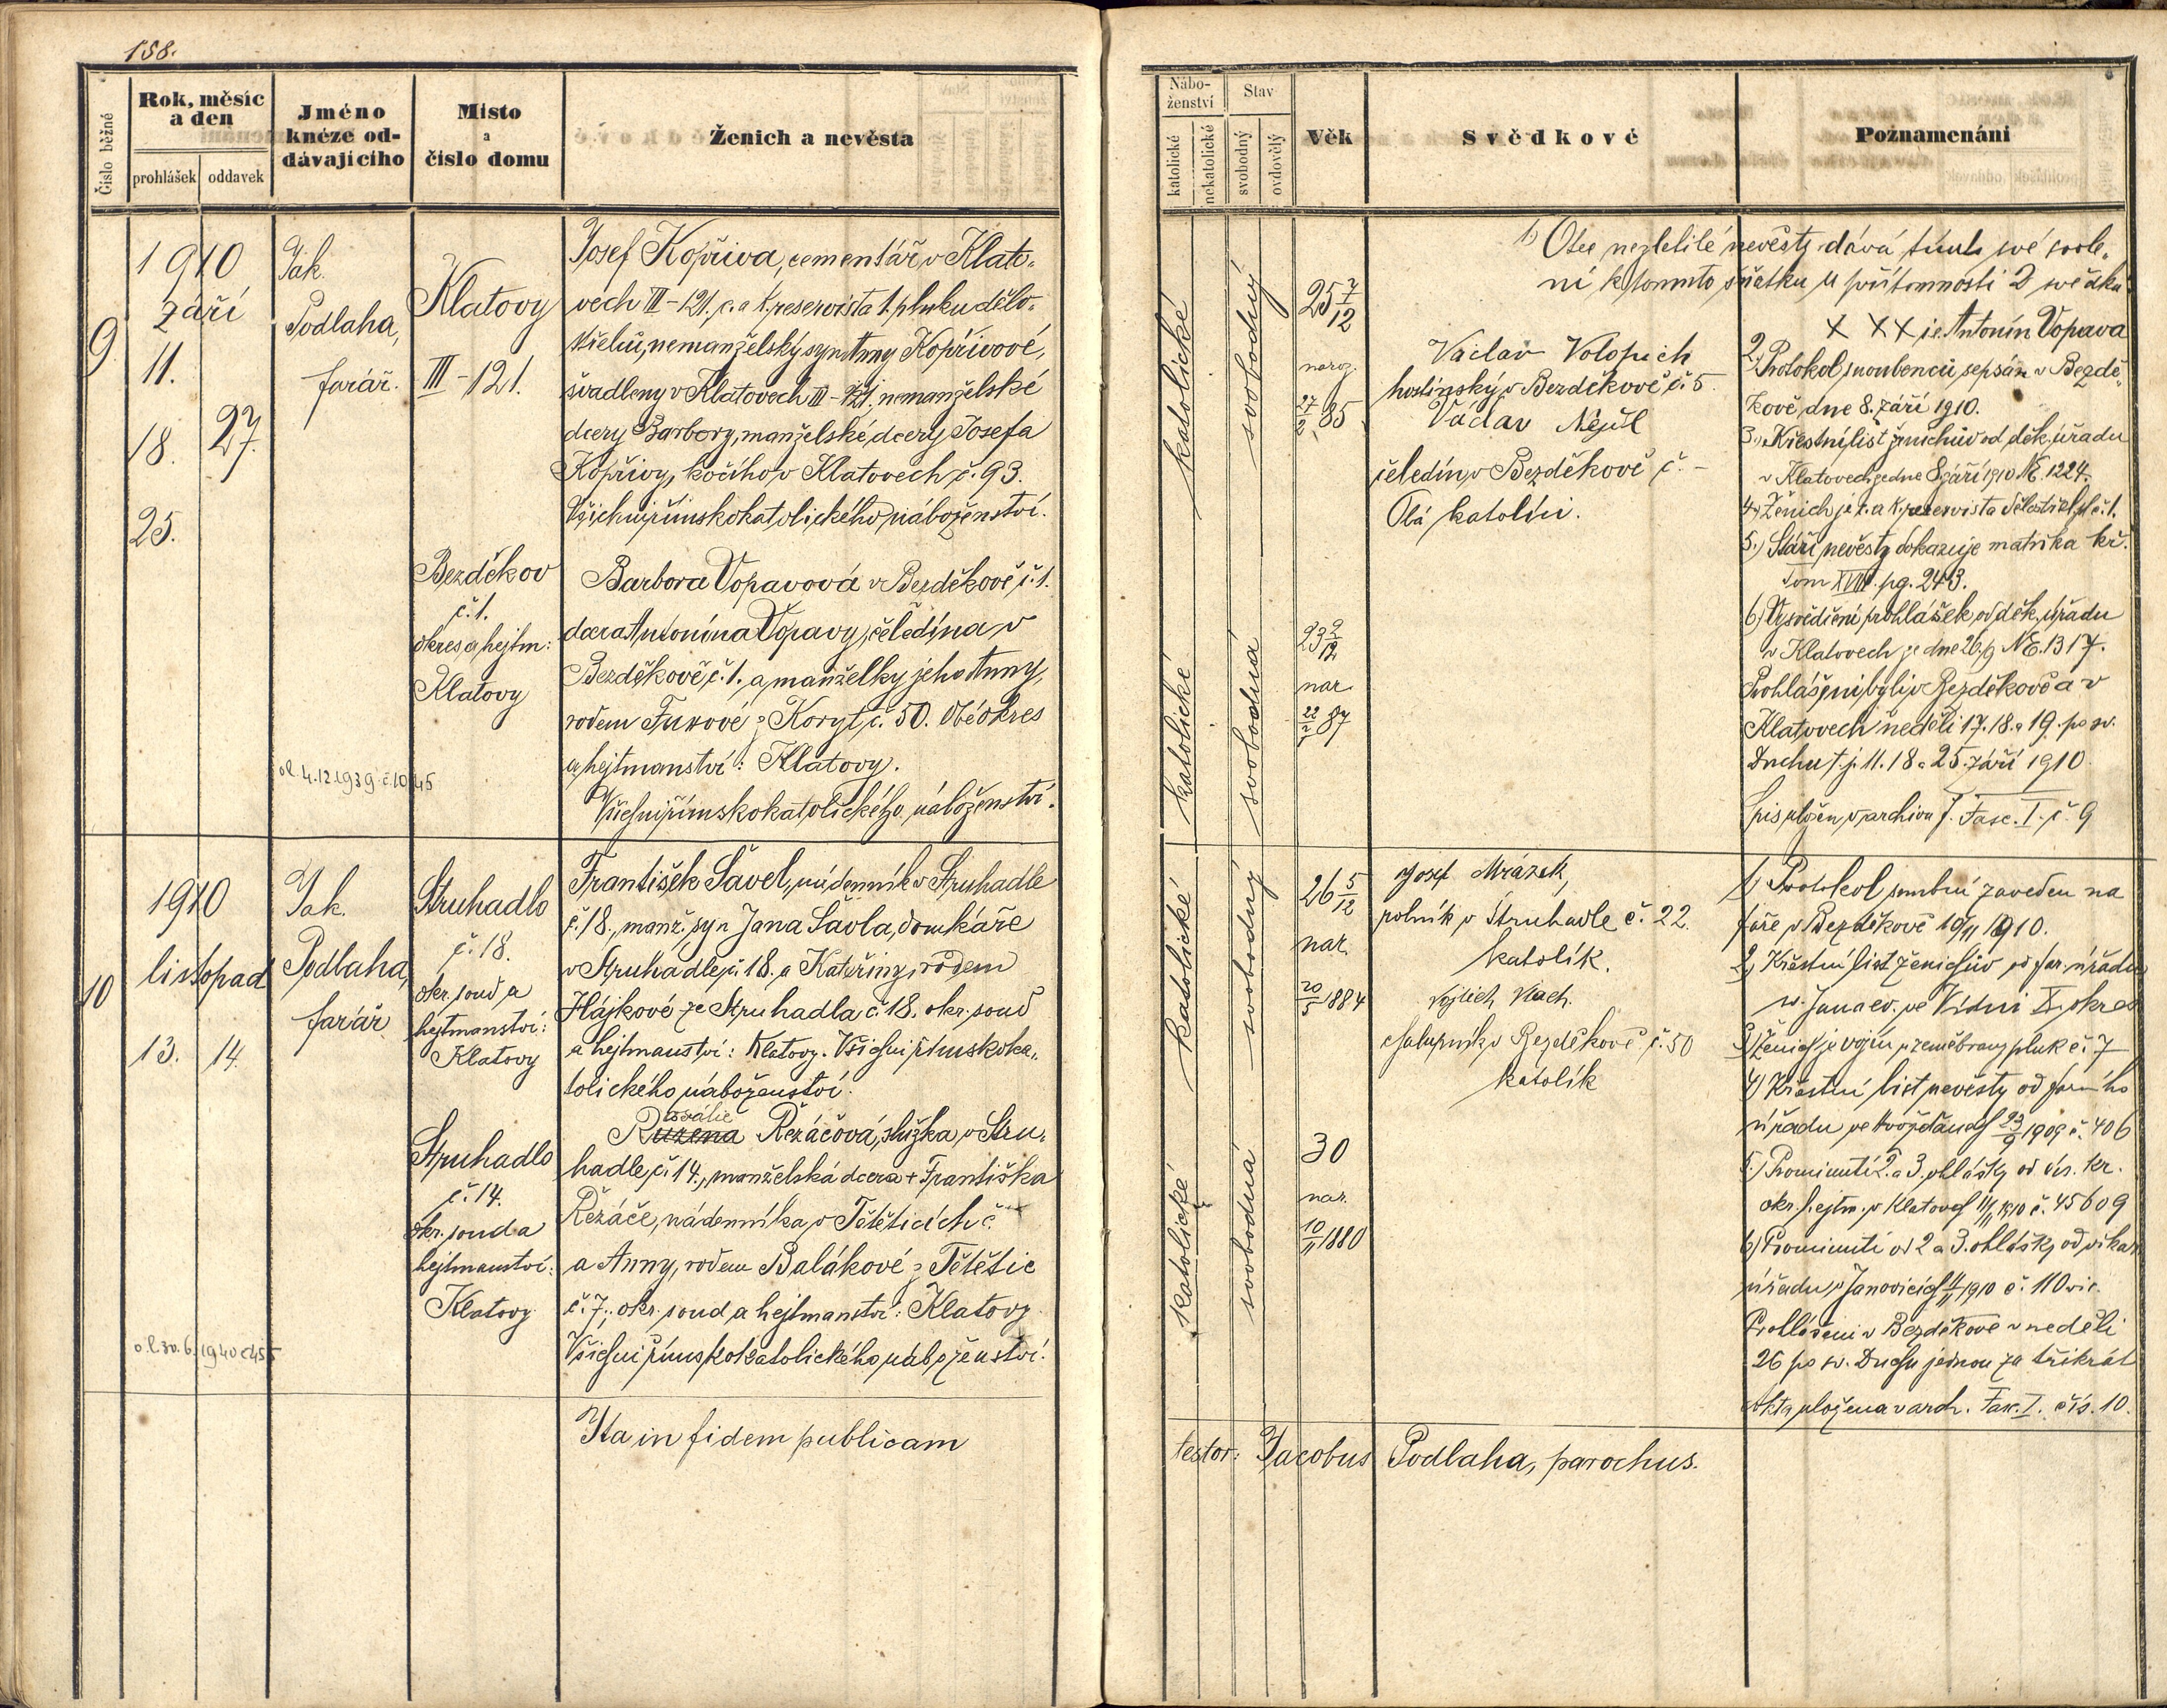 158.
Číslo běžné
Rok, měsíc
a den
prohlášek
oddavek
Jméno
kněze od-
dávajícího
Místo
a
číslo domu
Ženich a nevěsta
9
1910
září
11.
18.
27.
25.
Jak.
Podlaha,
farář.
Klatovy
III-121.
Josef Kopřiva, cementář v Klato-
vech III-121. c. a k. reservista 1. pluku dělo-
střelců, nemanželský syn Anny Kopřivové,
švadleny v Klatovech III-121, nemanželské
dcery Barbory, manželské dcery Josefa
Kopřivy, kočího v Klatovech č. 93.
Všichni římskokatolického náboženství.
Bezděkov
č. 1.
okres a hejtm:
Klatovy
Barbora Vopavová v Bezděkově č. 1.
dcera Antonína Vopavy, čeledína v
Bezděkově č. 1. a manželky jeho Anny,
rodem z Koryt č. 50. Obé okres
a hejtmanství: Klatovy.
Všichni římskokatolického náboženství.
ol 4.12.1939 č. 1045
10
1910
listopad
13.
14.
Jak.
Podlaha,
farář
Struhadlo
č. 18.
okr. soud a
hejtmanství:
Klatovy
František Šavel, nádenník v Struhadle
č. 18., manž. syn Jana Šavla, domkáře
v Struhadle č. 18. a Kateřiny, rodem
Hájkové ze Struhadla č. 18. okr. soud
a hejtmanství: Klatovy. Všichni římskoka-
tolického náboženství.
Struhadlo
č. 14.
okr. soud a
hejtmanství:
Klatovy
osalie
Ruzena Řezáčová, služka v Stru-
hadle, č. 14., manželská dcera + Františka
Řezáče, nádenníka v Tětěticích č.
a Anny, rodem Balákové z Tětětic
č. 7., okr. soud a hejtmanství: Klatovy
Všichni římskokatolického náboženství.
o.l. 30.6.1940 č 455
Ita in fidem publicam
Nábo-
ženství
katolické
nekatolické
Stav
svobodný
ovdovělý
Věk
Svědkové
Poznamenání
katolické
svobodný
25 7/12
narog.
27/2 85
Václav Volopich
hostinský v Bezděkově č. 5.
Václav Nejdl
čeledín v Bezděkově č. -
Oba katolíci.
1) Otec nezletilé nevěsty dává tímto své svole-
ní k tomuto sňatku u přítomnosti 2 svědků:
X X X je Antonín Vopava
2.) Protokol snoubenců sepsán v Bezdě-
kově dne 8. září 1910.
3.) Křestní list ženichův od děk. úřadu
v Klatovech je dne 8 září 1910 NE. 1224.
4.) Ženich je c. a k. reservista dělostřel. pl. č. 1.
5.) Stáří nevěsty dokazuje matrika kř.
Tom XVIII. pg. 243.
6.) Vysvědčení prohlášek od děk. úřadu
v Klatovech je dne 26/9 NE. 1317.
Prohlášeni byli v Bezděkově a v
Klatovech neděli 17. 18. a 19. po sv.
Duchu t. j. 11. 18 a 25. září 1910.
Spis uložen v archivu f. Fasc. I. č. 9
katolické
svobodná
23 2/12
nar.
22/7 87
katolické
svobodný
26 5/12
nar.
20/5 1884
Josef Mrázek,
rolník v Struhadle č. 22.
katolík.
Vojtěch Vlach.
chalupník v Bezděkově č. 50
katolík
1) Protokol snubní zaveden na
faře v Bezděkově 10/11 1910.
2) Křestní list ženichův od far. úřadu
sv. Jana ev. ve Vídni X. okres
3) Ženich je vojín u zeměbrany pluk č. 7
4) Křestní list nevěsty od farního
úřadu ve 23/9 1909 č. 406
5.) Prominutí 2. a 3. ohlášky od cís. kr.
okr. hejtm. v Klatovech 11/11 1910 č. 45609
6) Prominutí od 2 a 3. ohlášky od vikar.
úřadu v Janovicích 11/11 1910 č. 110 vic.
Prohlášeni v Bezděkově v neděli
26 po sv. Duchu jednou za třikrát
Akta uložena v arch. Fasc. I. čís. 10.
katolické
svobodná
30
nar.
10/11 1880
testor: Jacobus Podlaha, parochus.